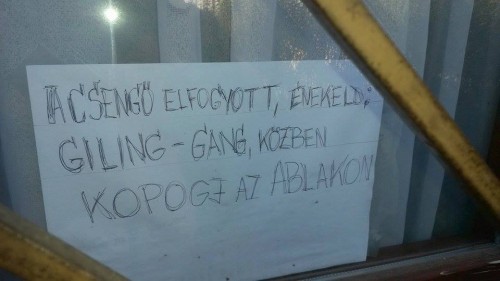 A CSENGŐ ELFOGYOTT, ÉNEKELD:
GILING - GANG, KÖZBEN
KOPOGJ AZ ABLAKON